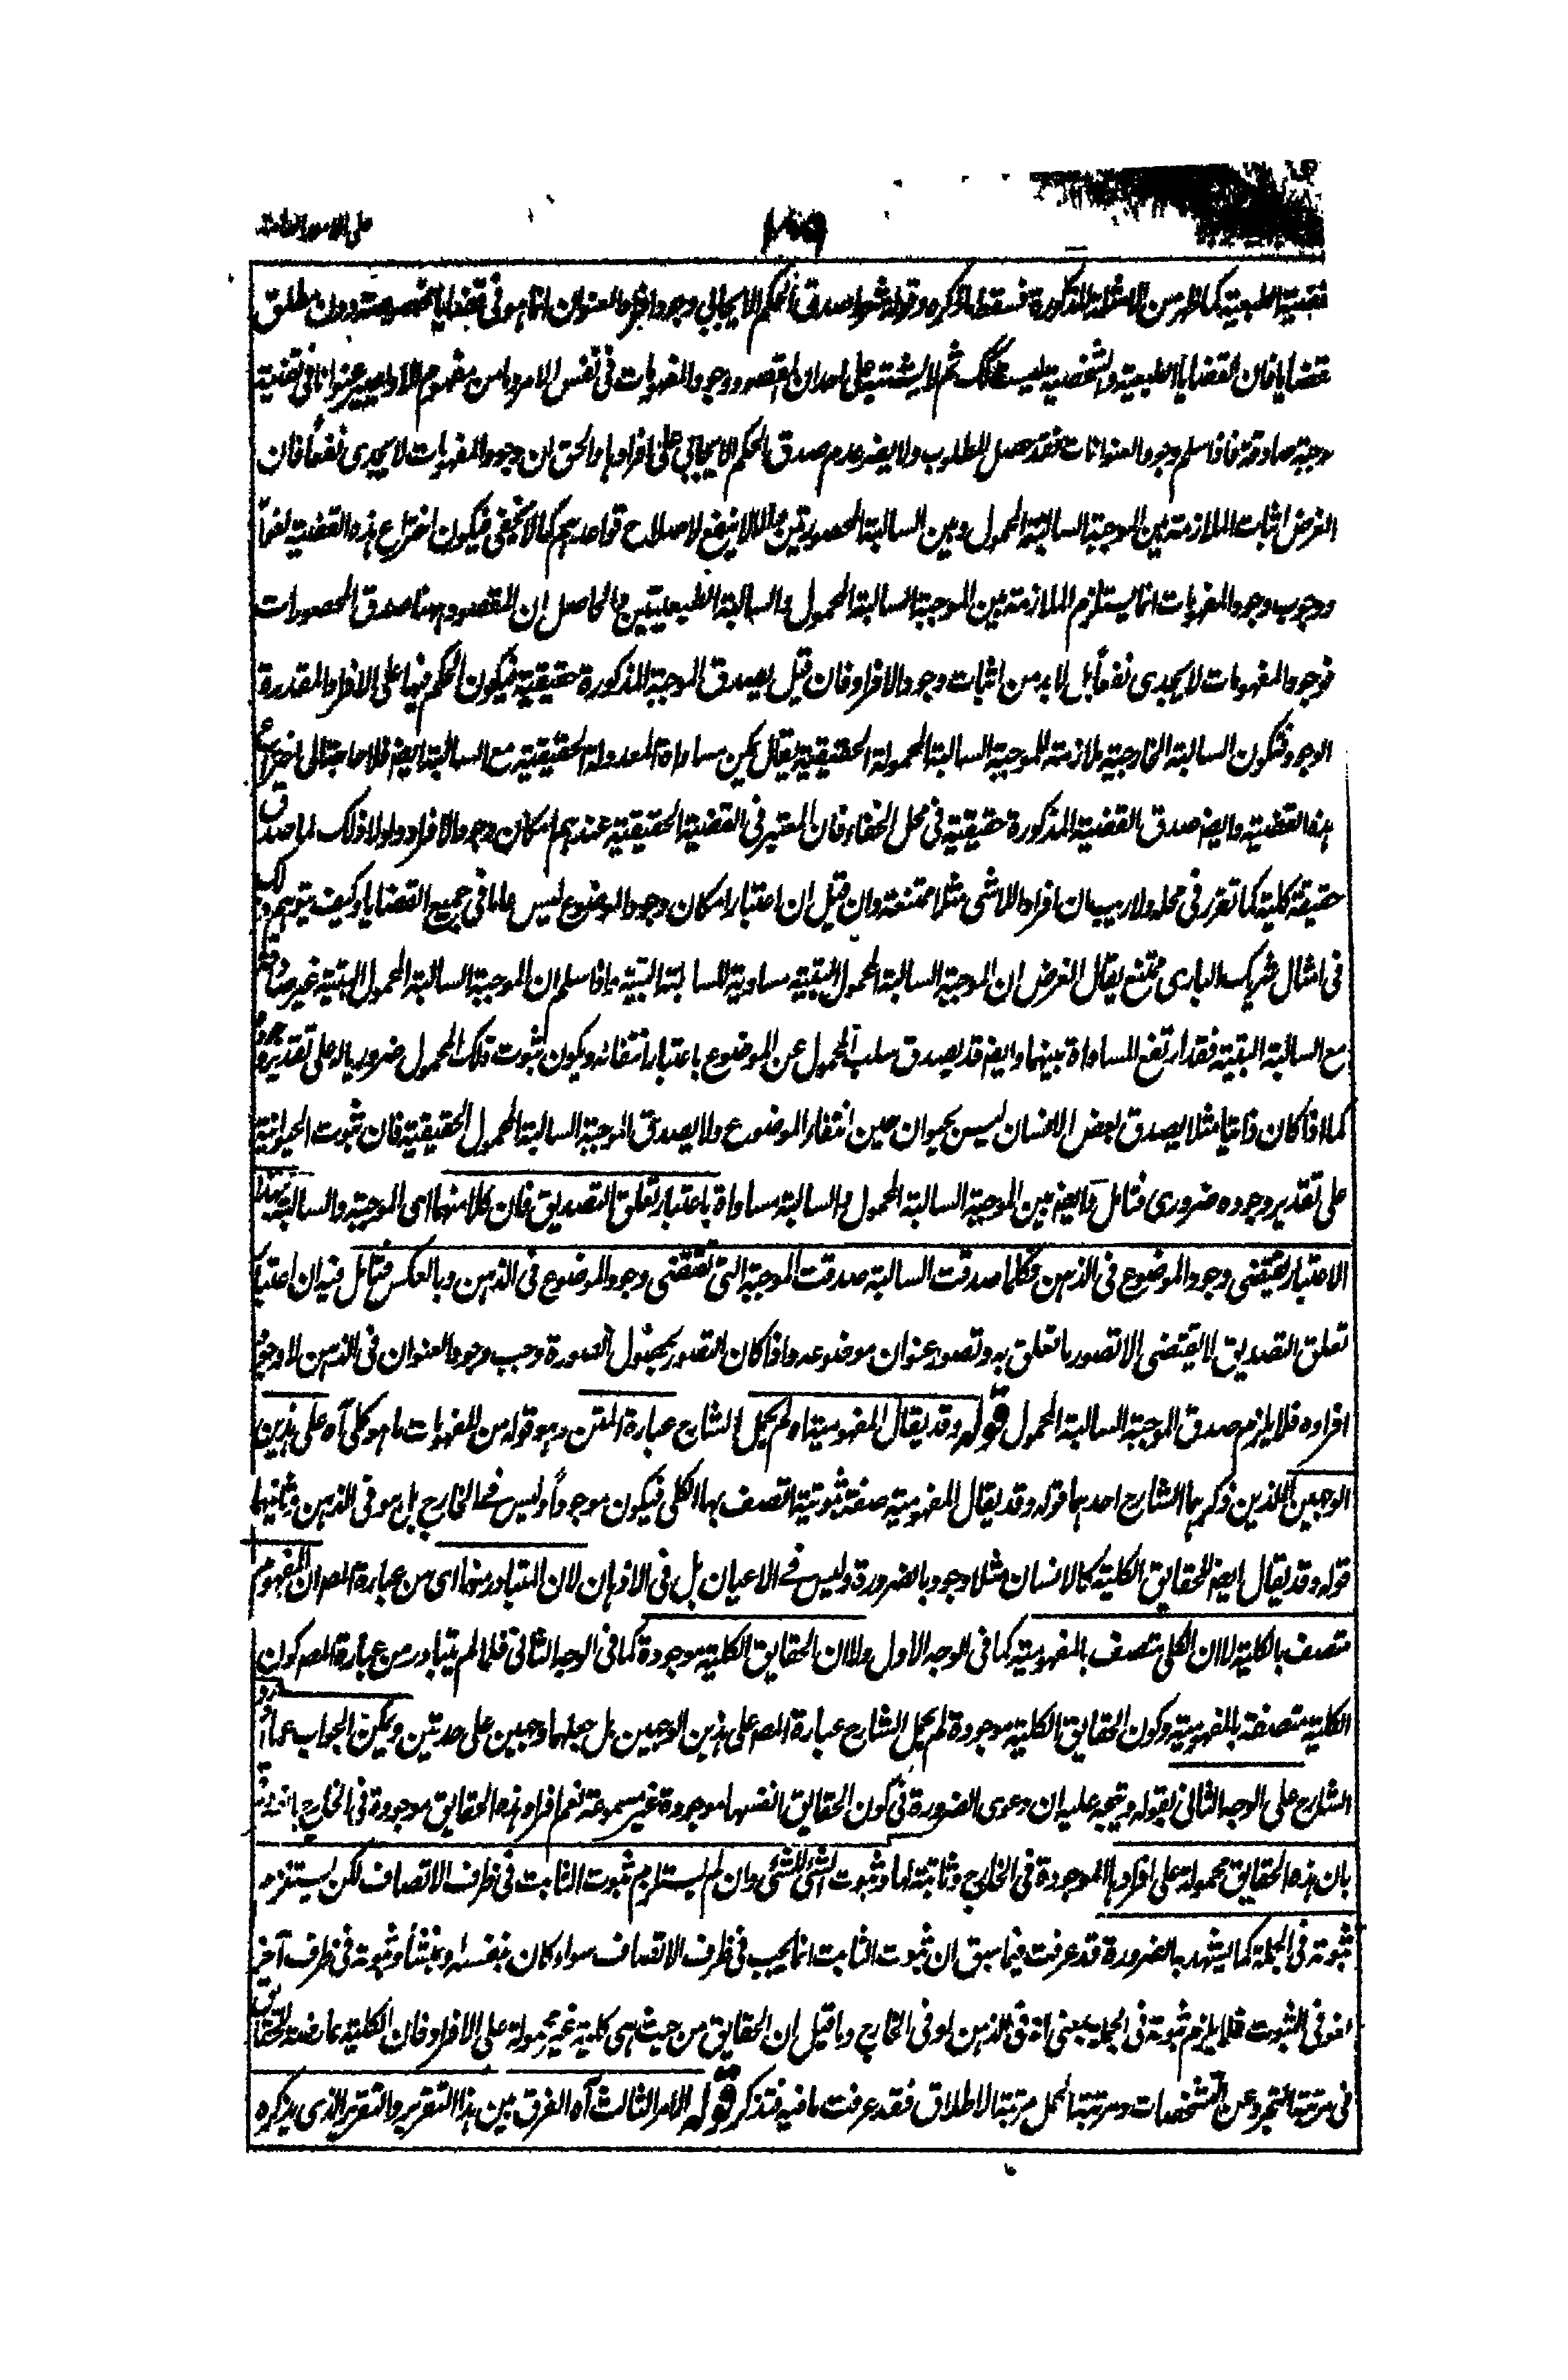 على الامور العامة
قضية الطبعية كما ظهر من الامثلة المذكورة فسقط ما ذكره وقوله شهدا صدق الحكم الايجابي وجود العنوان انما هو في قضايا مخصوصة دون مطلق
قضايا فان القضايا الطبعية والشخصية ليست كذلك ثم لا يشتبه على احد ان المقصود وجود المفهومات في نفس الامر وما من مفهوم الا ويصير عنوانا في قضية
موجبة صادقة فاذا سلم وجود العنوانات فقد حصل المطلوب ولا يضر عدم صدق الحكم الايجابي على افرادها والحق ان وجود المفهومات لا يجدي نفعا فان
الغرض اثبات الملازمة بين الموجبة السالبة المحمول وبين السالبة المحصورتين والا لا ينفع لاصلاح قواعدهم كما لا يخفى فيكون اختراع هذه القضية لغوا
ووجوب وجود المفهومات انما يستلزم الملازمة بين الموجبة السالبة المحمول والسالبة الطبيعيتين والحاصل ان المقصود ههنا صدق المحصورات
فوجود المفهومات لا يجدي نفعا بل لا بد من اثبات وجود الافراد فان قيل يصدق الموجبة المذكورة حقيقية فيكون الحكم فيها على الافراد المقدرة
الوجود فتكون السالبة الخارجية ملازمة للموجبة السالبة المحمولة الحقيقية يقال يمكن مساواة المعدولة الحقيقية مع السالبة ايضا فلا حاجة الى اختراع
هذه القضية وايضا صدق القضية المذكورة حقيقية في محل الخفاء فان المعتبر في القضية الحقيقية عندهم امكان وجود الافراد ولولا ذلك لما صدق
حقيقة كلية كما تقرر في محله ولا ريب ان افراد اللاشي مثلا ممتنعة وان قيل ان اعتبار امكان وجود الموضوع ليس عاما في جميع القضايا وكيف يتوهم ذلك
في امثال شريك الباري ممتنع يقال الغرض ان الموجبة السالبة المحمول البتية مساوية للسالبة البتية واذا سلم ان الموجبة السالبة المحمول البتية غير صادقة
مع السالبة البتية فقد ارتفع المساواة بينهما وايضا قد يصدق سلب المحمول عن الموضوع باعتبار انتفائه ويكون ثبوت ذلك المحمول ضروريا له على تقدير وجوده
كما اذا كان ذاتيا مثلا يصدق بعض الانسان ليس بحيوان حين انتفاء الموضوع ولا يصدق الموجبة السالبة المحمول الحقيقية فان ثبوت الحيوانية
على تقدير وجوده ضروري فتامل وايضا بين الموجبة السالبة المحمول والسالبة مساواة باعتبار تعلق التصديق فان كلا منهما اى الموجبة والسالبة بهذا
الاعتبار يقتضي وجود الموضوع في الذهن فكلما صدقت السالبة صدقت الموجبة التي تقتضي وجود الموضوع في الذهن وبالعكس فتامل فيه ان اعتبار
تعلق التصديق لا يقتضي الا تصور ما تعلق به وتصور عنوان موضوعه واذا كان التصور بحصول الصورة وجب وجود العنوان في الذهن لا وجود
افراده فلا يلزم صدق الموجبة السالبة المحمول قوله وقد يقال المفهومية اه لم يحمل الشارح عبارة المتن وهو قوله من المفهومات ما هو كلي آه على هذين
الوجهين اللذين ذكرهما الشارح احدهما قوله وقد يقال المفهومية صفة ثبوتية اتصف بها الكلي فيكون موجودا وليس في الخارج بل هو في الذهن وثانيهما
قوله وقد يقال ايضا الحقايق الكلية كالانسان مثلا وجود بالضرورة وليس في الاعيان بل في الاذهان لان المتبادر منها اى من عبارة المص ان المفهوم
متصف بالكلية لا ان الكلي متصف بالمفهومية كما في الوجه الاول ولا ان الحقايق الكلية موجودة كما في الوجه الثاني فلما لم يتبادر من عبارة المص كون
الكلية متصفة بالمفهومية وكون الحقايق الكلية موجودة لم يحمل الشارح عبارة المص على هذين الوجهين بل جعلهما وجهين على حدتين ويمكن الجواب عما اورد
الشارح على الوجه الثاني بقوله ويتجه عليه ان دعوى الضرورة في كون الحقايق انفسها موجودة غير مسموعة نعم افراد هذه الحقايق موجودة في الخارج بالضرورة
بان هذه الحقايق محمولة على افرادها الموجودة في الخارج وثابتة لها وثبوت الشئ للشئ وان لم يستلزم ثبوت الثابت في ظرف الاتصاف لكن يستلزم
ثبوته في الجملة كما يشهد به الضرورة قد عرفت فيما سبق ان ثبوت الثابت انما يجب في ظرف الاتصاف سواء كان بنفسه او بمنشأه وثبوته في ظرف آخر
لغو في الثبوت فلا يلزم ثبوته في الجملة بمعنى انه في الذهن او في الخارج وما قيل ان الحقايق من حيث هي كلية غير محمولة على الافراد فان الكلية عارضة للحقايق
في مرتبة التجرد عن التشخصات ومرتبة الحمل مرتبة الاطلاق فقد عرفت ما فيه فتذكر قوله الامر الثالث آه الفرق بين هذا التقرير والتقرير الذي يذكره